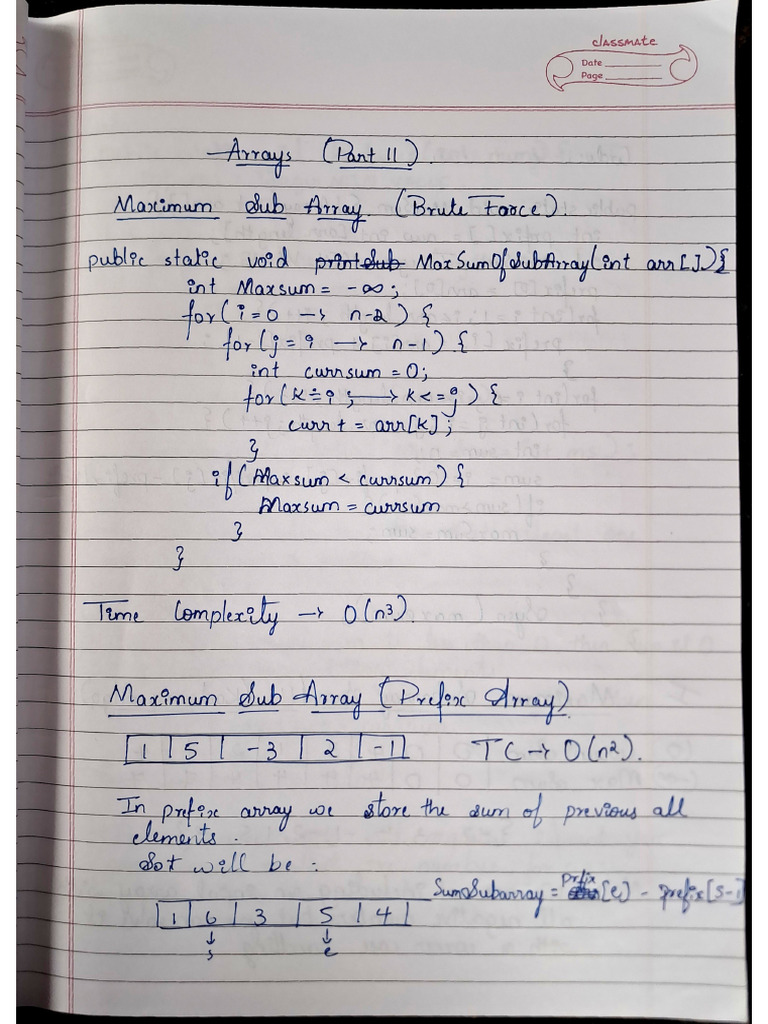 classmate
Date
Page
Arrays (Part II).
Maximum Sub Array. (Brute Force).
public static void printSub MaxSumOfSubArray(int arr[]){
int Maxsum = -∞;
for(i=0 → n-2) {
for(j=i → n-1) {
int currsum = 0;
for(k=i; → k<=j) {
curr+ = arr[k];
}
if(Maxsum < currsum) {
Maxsum = currsum
}
}
Time Complexity → O(n³).
Maximum Sub Array (Prefix Array).
1 5 -3 2 -1 TC → O(n²).
In prefix array we store the sum of previous all
elements.
So it will be:
SumSubarray = prefix[e] - prefix[s-1]
1 6 3 5 4
↓ ↓
s e